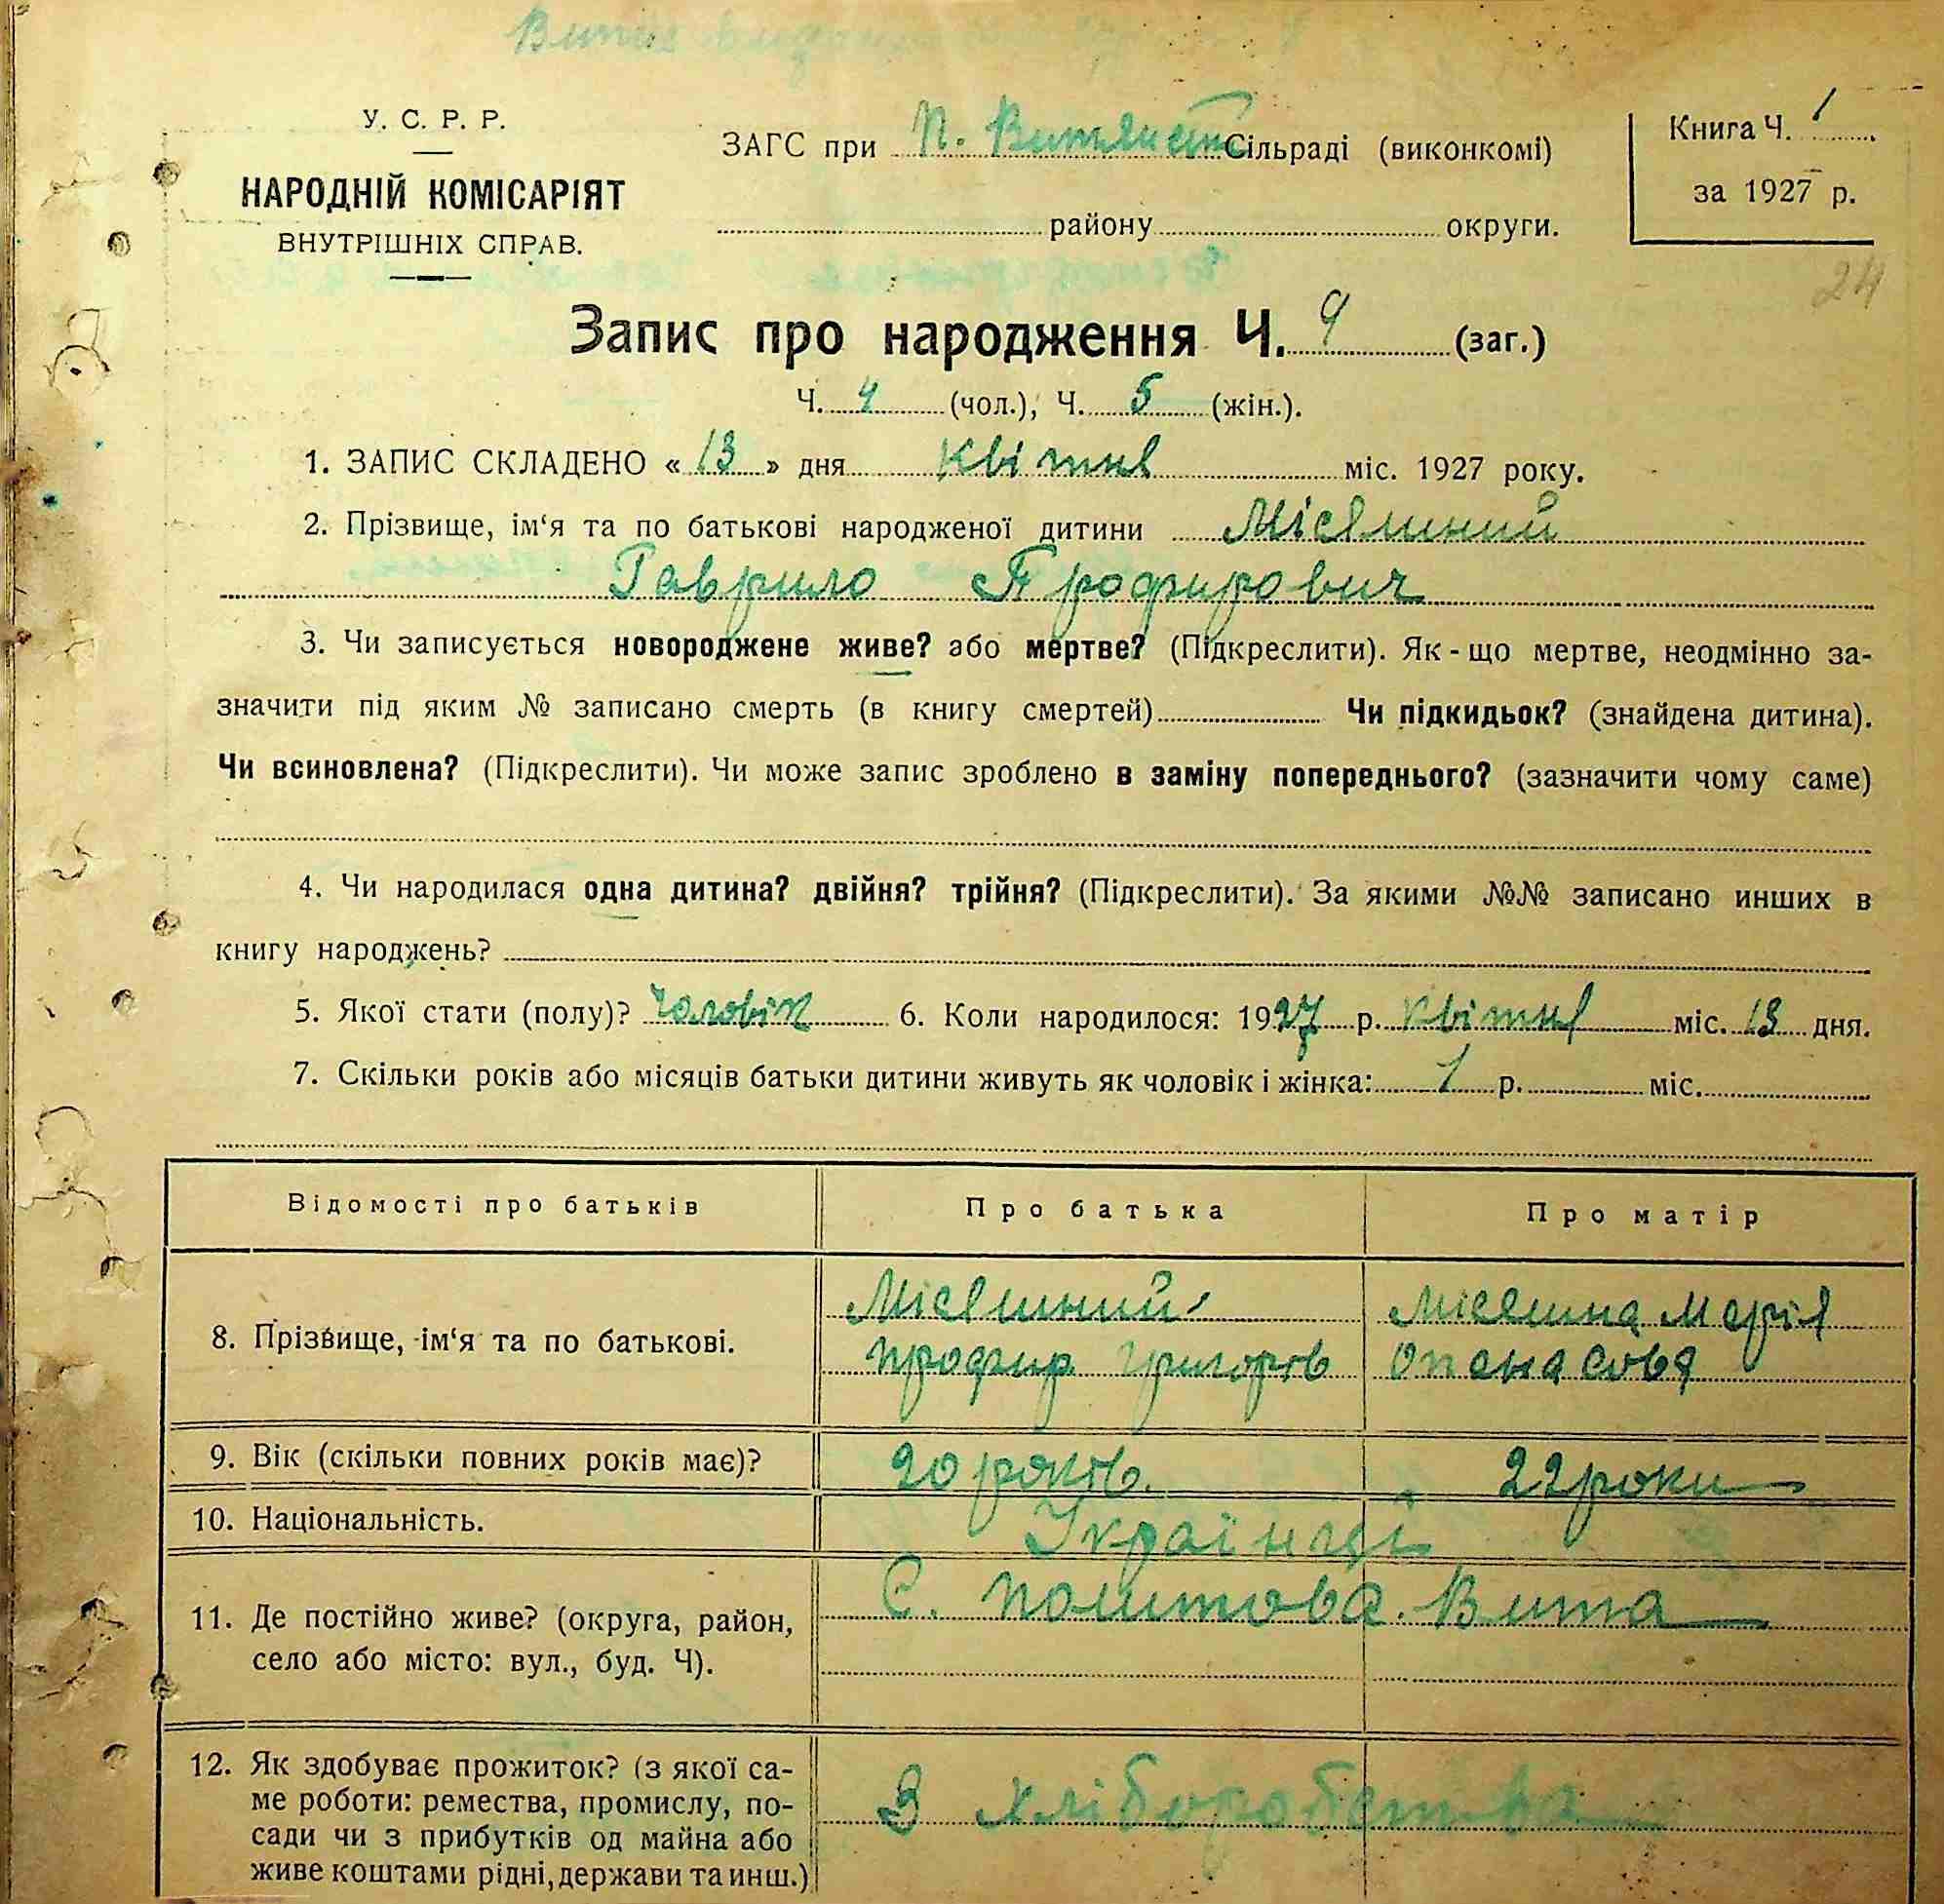 У. С. Р. Р.
НАРОДНІЙ КОМІСАРІЯТ
ВНУТРІШНІХ СПРАВ.
ЗАГС при П. Сільраді (виконкомі)
району округи.
Книга Ч. 1
за 1927 р.
24
Запис про народження Ч. 9 (заг.)
Ч. 4 (чол.), Ч. 5 (жін.).
1. ЗАПИС СКЛАДЕНО « 13 » дня квітня міс. 1927 року.
2. Прізвище, ім‘я та по батькові народженої дитини Місяшний
Гаврило Профирович
3. Чи записується новороджене живе? або мертве? (Підкреслити). Як-що мертве, неодмінно за-
значити під яким № записано смерть (в книгу смертей) Чи підкидьок? (знайдена дитина).
Чи всиновлена? (Підкреслити). Чи може запис зроблено в заміну попереднього? (зазначити чому саме)
4. Чи народилася одна дитина? двійня? трійня? (Підкреслити). За якими №№ записано инших в
книгу народжень?
5. Якої стати (полу)? Чоловік 6. Коли народилося: 1927 р. квітня міс. 13 дня.
7. Скільки років або місяців батьки дитини живуть як чоловік і жінка: 1 р. міс.
Відомості про батьків Про батька Про матір
8. Прізвище, ім‘я та по батькові.
Місяшний Місяшна Марія
Профир Григорів Опанасова
9. Вік (скільки повних років має)? 20 років. 22 роки
10. Національність. Українці
11. Де постійно живе? (округа, район,
село або місто: вул., буд. Ч).
С. Поштова. Вита
12. Як здобуває прожиток? (з якої са-
ме роботи: ремества, промислу, по-
сади чи з прибутків од майна або
живе коштами рідні, держави та инш.)
З хліборобства